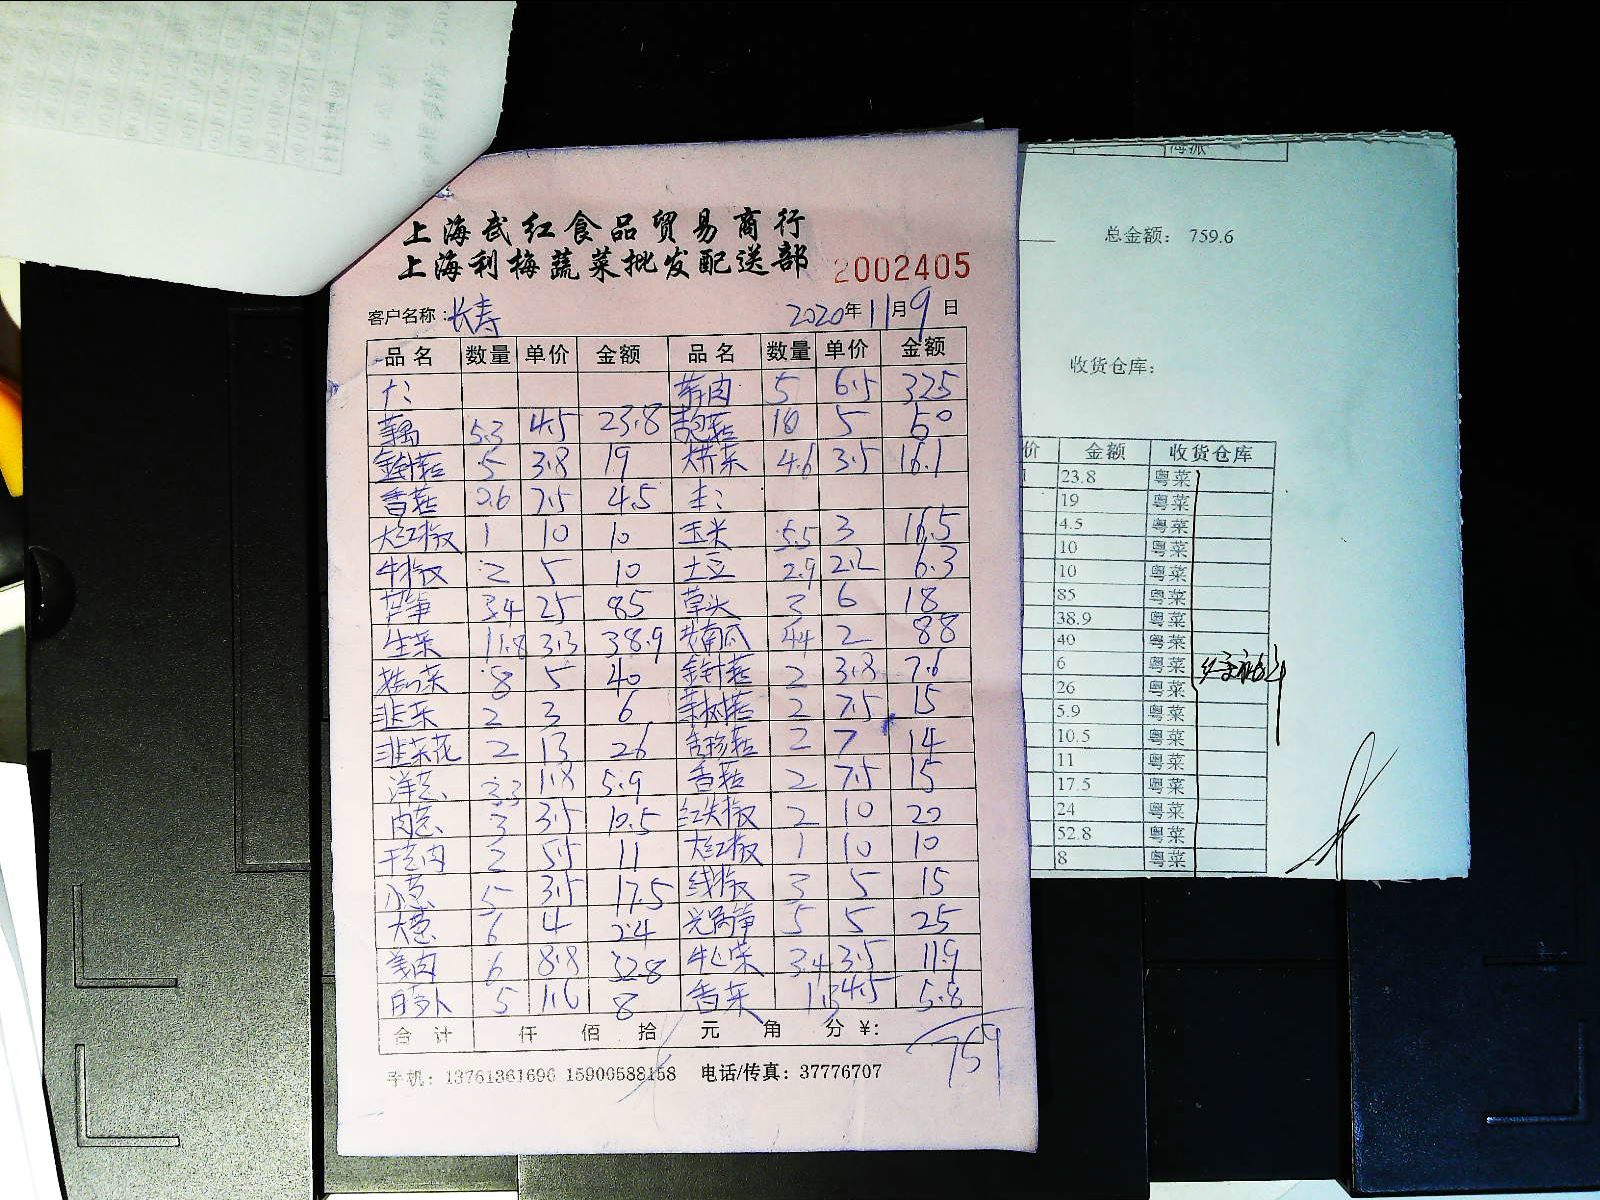 上海武红食品贸易商行
上海利梅蔬菜批发配送部
2002405
客户名称：长寿 2020年11月9日
品名 数量 单价 金额 品名 数量 单价 金额
蒜肉 5 6.5 32.5
5.3 4.5 23.8 10 5 50
金针菇 5 3.8 19 4.6 3.5 16.1
香菇 0.6 7.5 4.5
大红椒 1 10 10 玉米 5.5 3 16.5
牛椒 2 5 10 土豆 2.9 2.2 6.3
芦笋 3.4 25 85 草头 3 6 18
生菜 11.8 3.3 38.9 老南瓜 44 2 88
8 5 40 金针菇 2 3.8 7.6
韭菜 2 3 6 茶树菇 2 7.5 15
韭菜花 2 13 26 杏鲍菇 2 7 14
洋葱 3.3 1.8 5.9 香菇 2 7.5 15
肉葱 3 3.5 10.5 红尖椒 2 10 20
干葱肉 2 5.5 11 大红椒 1 10 10
小葱 5 3.5 17.5 线椒 3 5 15
大葱 6 4 24 光莴笋 5 5 25
姜肉 6 8.8 52.8 牛心菜 3.4 3.5 11.9
白萝卜 5 1.6 8 香菜 1.3 4.5 5.8
合计 仟 佰 拾 元 角 分 ¥: 759
手机：13761361696 15900588158 电话/传真：37776707
总金额： 759.6
收货仓库：
价 金额 收货仓库
23.8 粤菜
19 粤菜
4.5 粤菜
10 粤菜
10 粤菜
85 粤菜
38.9 粤菜
40 粤菜
6 粤菜
26 粤菜
5.9 粤菜
10.5 粤菜
11 粤菜
17.5 粤菜
24 粤菜
52.8 粤菜
8 粤菜